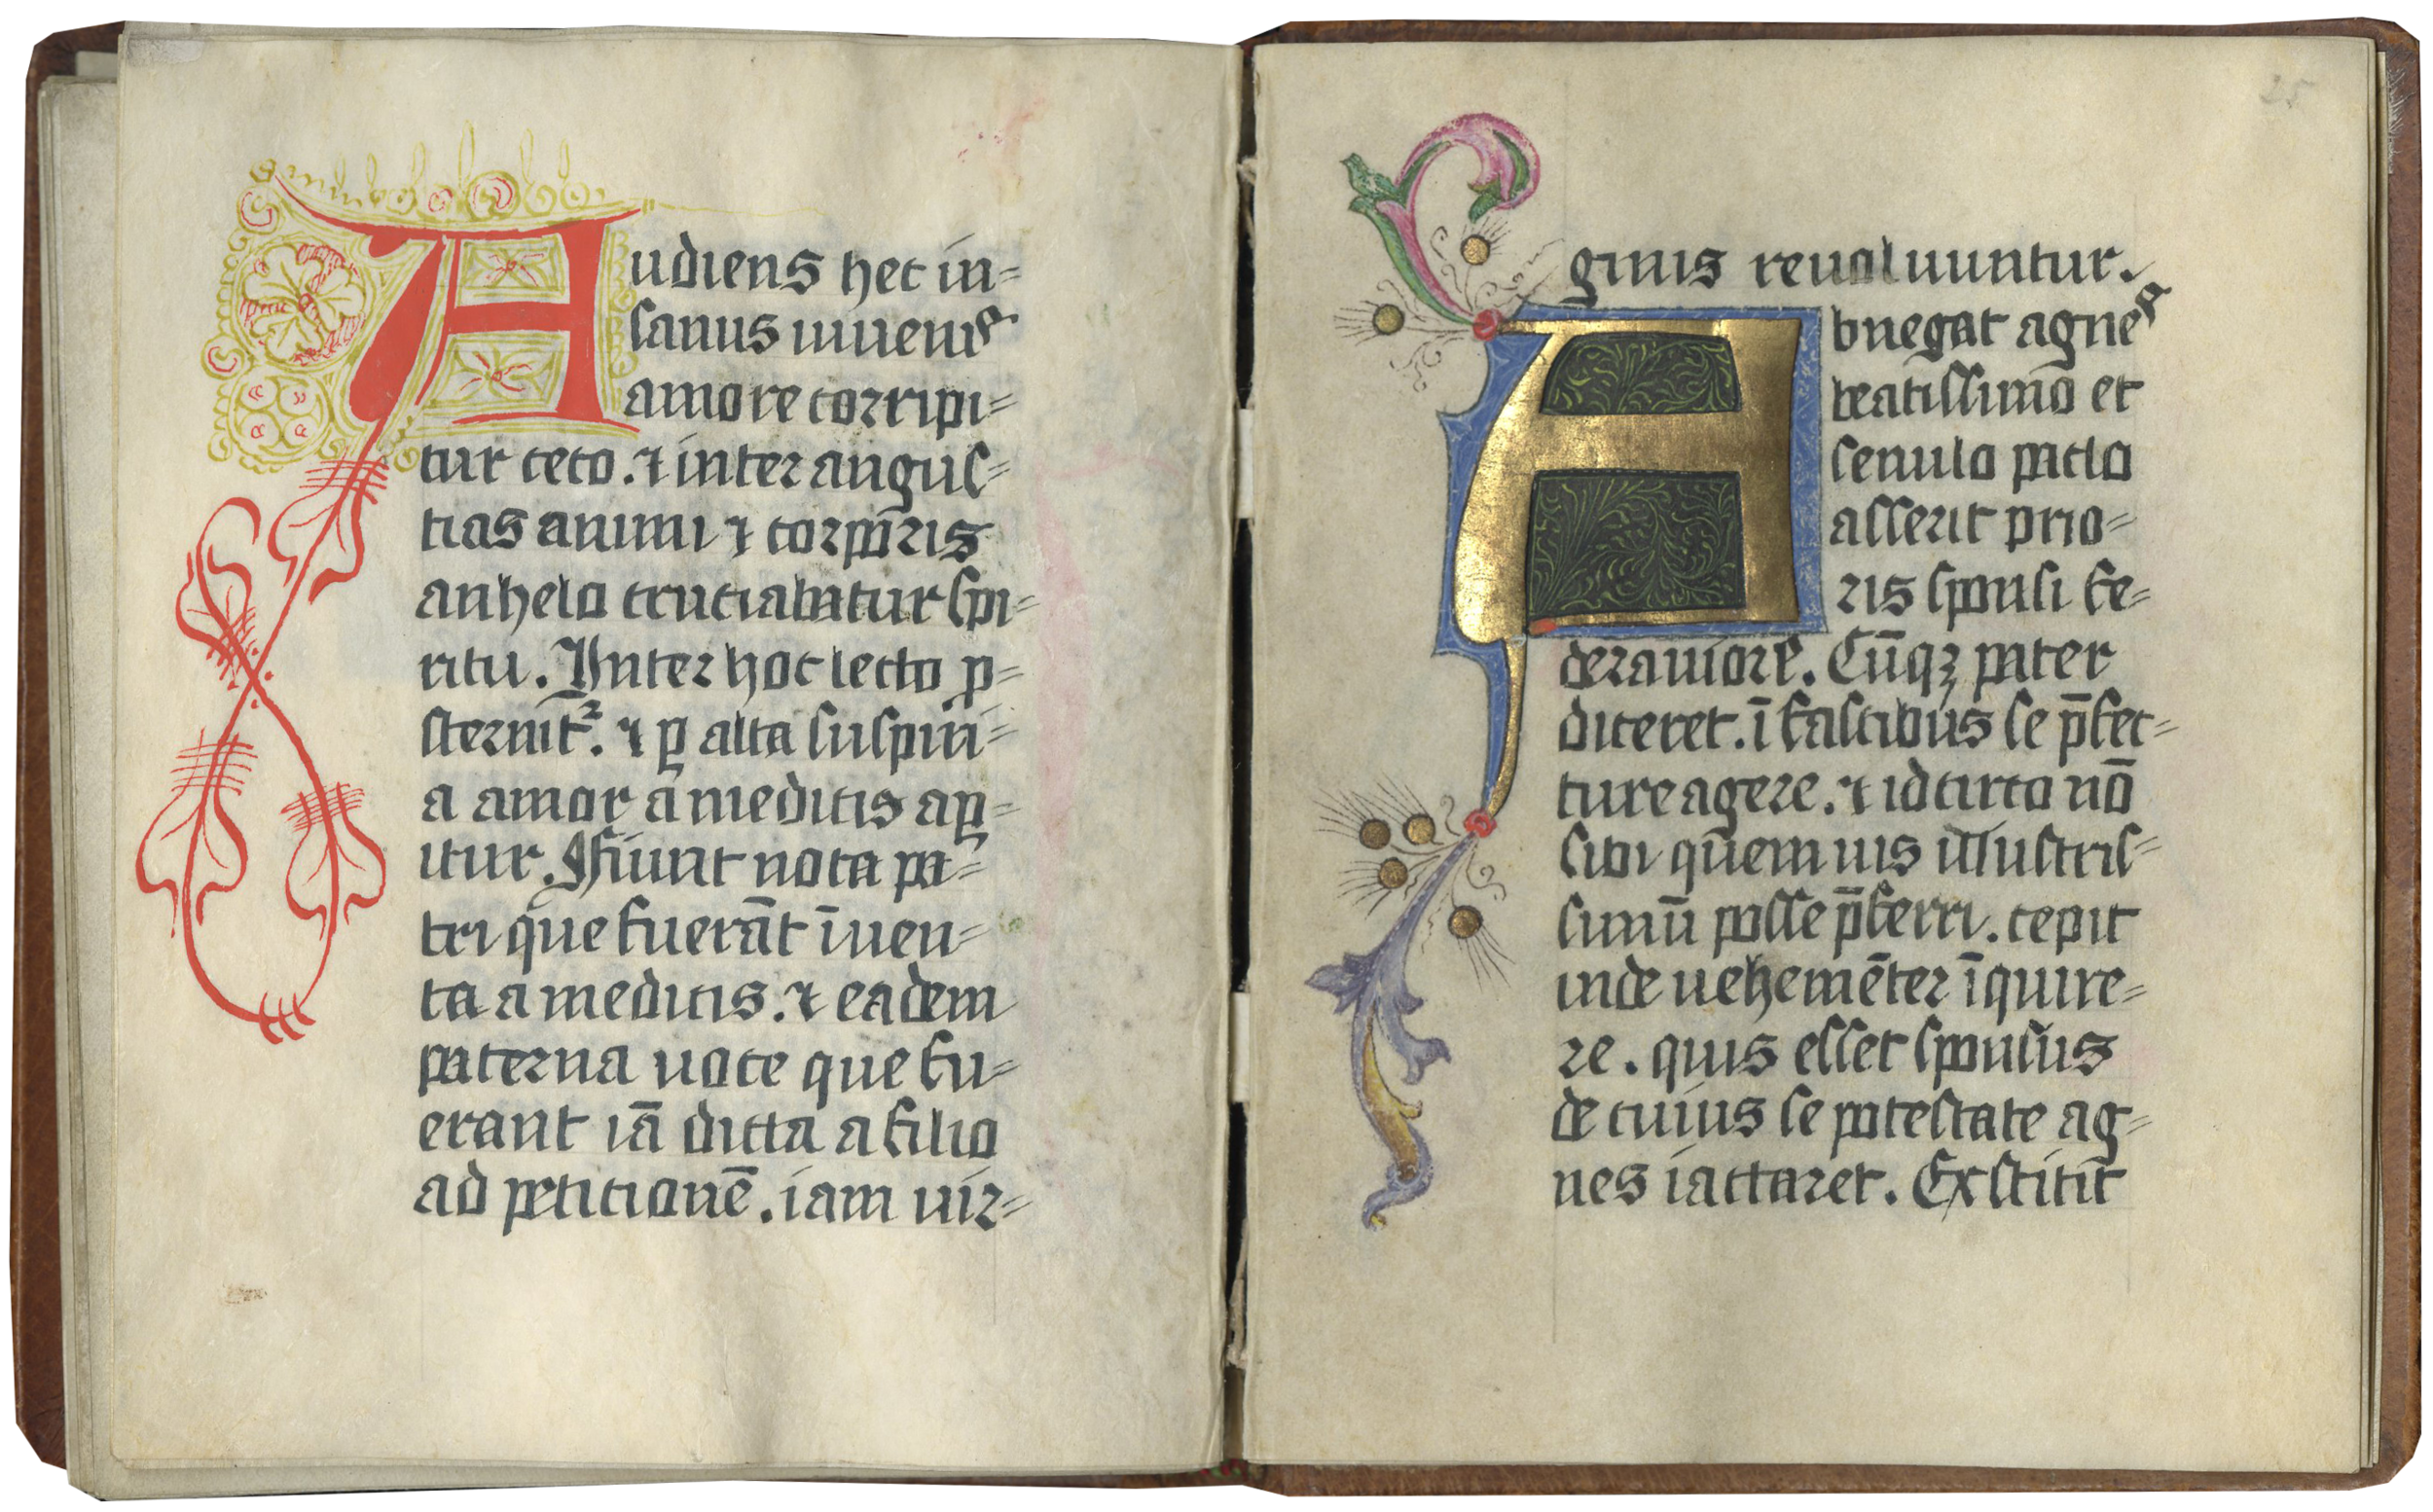 Audiens hec in=
sanus iuuenis
amore corripi=
tur ceco. ⁊ inter angus=
tias animi ⁊ corporis
anhelo cruciabatur spi=
ritu. Inter hoc lecto p=
sternit᷑. ⁊ ꝑ alta suspiri=
a amor a medicis aꝑ=
itur. Fiunt nota pa=
tri que fuerāt īuen=
ta a medicis. ⁊ eadem
paterna uoce que fu=
erant iā dicta a filio
ad petitionē. iam uir=
25
ginis reuoluuntur.
Abnegat agnes
beatissima et
se nulo pacto
asserit prio=
ris sponsi fe=
dera uiolare. Cūqꝫ pater
diceret. ī fascibus se p̄fec=
ture agere. ⁊ idcirco nō
sibi quem uis illustris=
simū posse p̄ferri. cepit
inde uehemēter īquire=
re. quis esset sponsus
de cuius se potestate ag=
nes iactaret. Exstitit